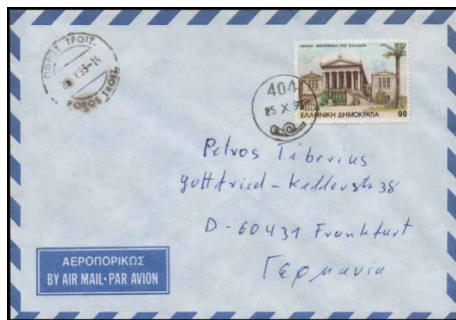 ΠΟΡΟΣ ΤΡΟΙΖ.
93-14
POROS TROIZ.
404
25 X 9
ΕΛΛΗΝΙΚΗ ΔΗΜΟΚΡΑΤΙΑ 90
Petros Tiberius
Gottfried-Kellerstr 38
D-60431 Frankfurt
Γερμανία
ΑΕΡΟΠΟΡΙΚΩΣ
BY AIR MAIL·PAR AVION